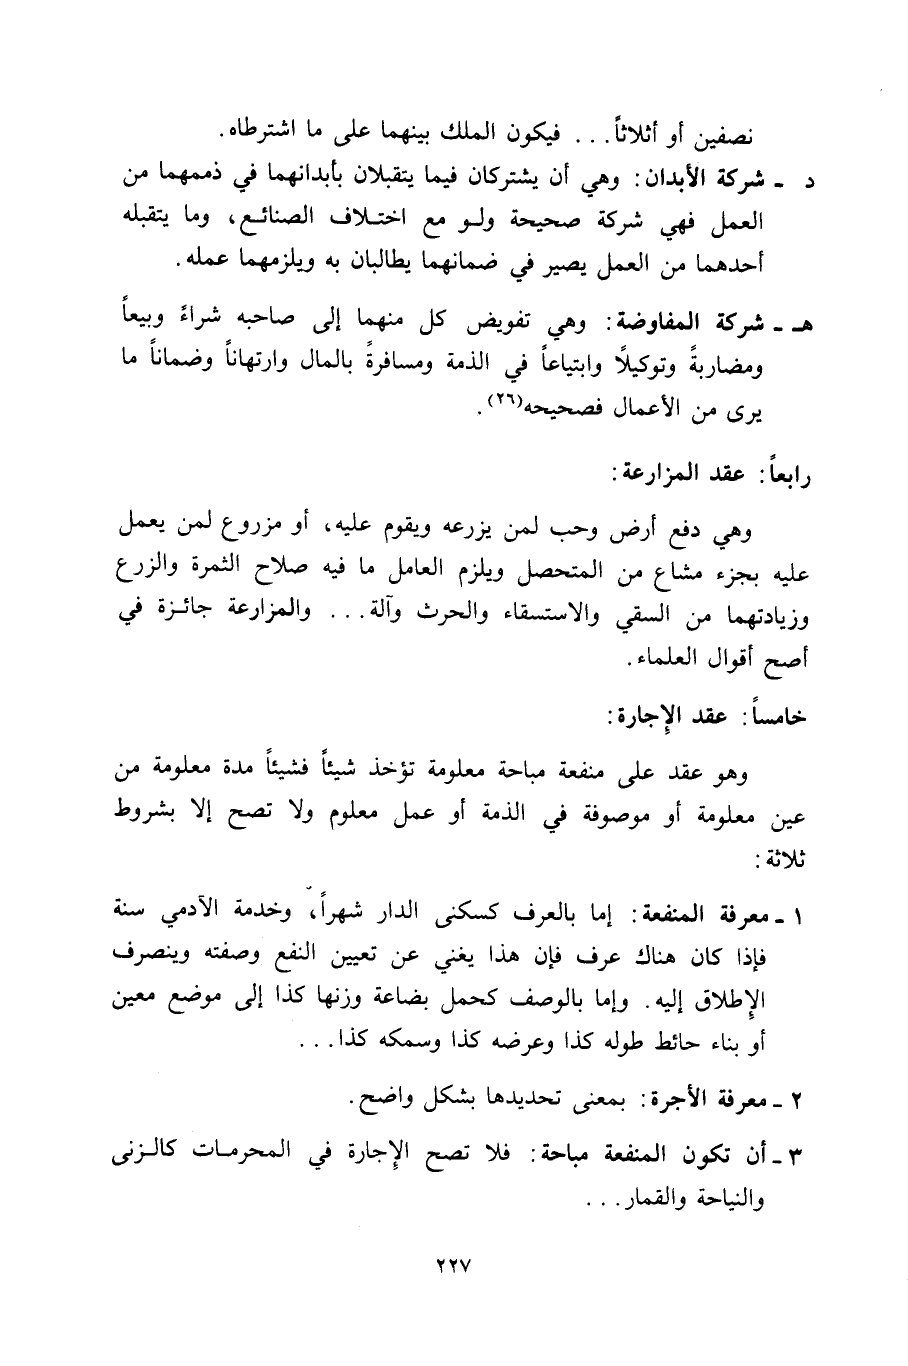 نصفين أو أثلاثاً... فيكون الملك بينهما على ما اشترطاه.
د - شركة الأبدان: وهي أن يشتركان فيما يتقبلان بأبدانهما في ذممهما من
العمل فهي شركة صحيحة ولو مع اختلاف الصنائع، وما يتقبله
أحدهما من العمل يصير في ضمانهما يطالبان به ويلزمهما عمله.
هـ - شركة المفاوضة: وهي تفويض كل منهما إلى صاحبه شراءً وبيعاً
ومضاربةً وتوكيلاً وابتياعاً في الذمة ومسافرةً بالمال وارتهاناً وضماناً ما
يرى من الأعمال فصحيحه(٢٦).
رابعاً: عقد المزارعة:
وهي دفع أرض وحب لمن يزرعه ويقوم عليه، أو مزروع لمن يعمل
عليه بجزء مشاع من المتحصل ويلزم العامل ما فيه صلاح الثمرة والزرع
وزيادتهما من السقي والاستسقاء والحرث وآلة... والمزارعة جائزة في
أصح أقوال العلماء.
خامساً: عقد الإجارة:
وهو عقد على منفعة مباحة معلومة تؤخذ شيئاً فشيئاً مدة معلومة من
عين معلومة أو موصوفة في الذمة أو عمل معلوم ولا تصح إلا بشروط
ثلاثة:
١ - معرفة المنفعة: إما بالعرف كسكنى الدار شهراً، وخدمة الآدمي سنة
فإذا كان هناك عرف فإن هذا يغني عن تعيين النفع وصفته وينصرف
الإطلاق إليه. وإما بالوصف كحمل بضاعة وزنها كذا إلى موضع معين
أو بناء حائط طوله كذا وعرضه كذا وسمكه كذا...
٢ - معرفة الأجرة: بمعنى تحديدها بشكل واضح.
٣ - أن تكون المنفعة مباحة: فلا تصح الإجارة في المحرمات كالزنى
والنياحة والقمار...
٢٢٧